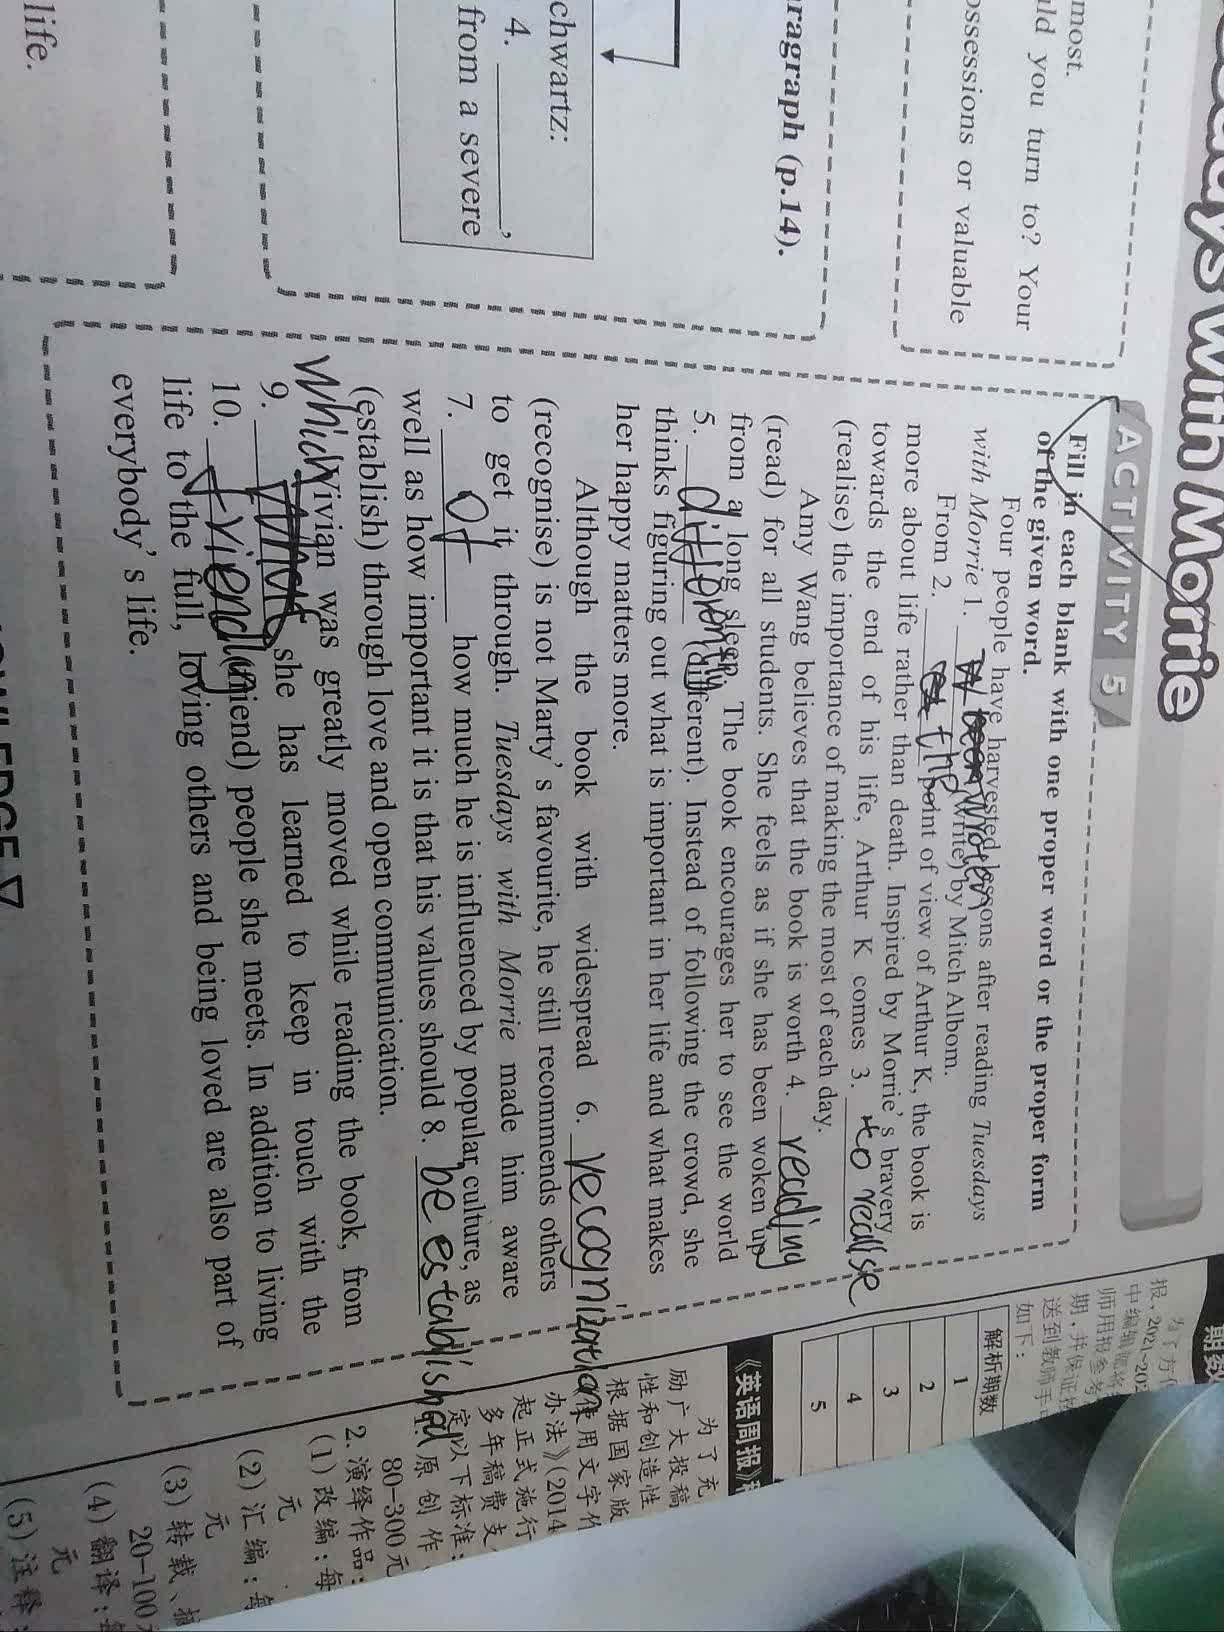 days with Morrie
most.
ld you turn to? Your
ossessions or valuable
ragraph (p.14).
chwartz:
4. ________,
from a severe
life.
ACTIVITY 5
Fill in each blank with one proper word or the proper form
of the given word.
Four people have harvested lessons after reading Tuesdays
with Morrie 1. (write) by Mitch Albom.
From 2. the point of view of Arthur K, the book is
more about life rather than death. Inspired by Morrie's bravery
towards the end of his life, Arthur K comes 3. to realise
(realise) the importance of making the most of each day.
Amy Wang believes that the book is worth 4. reading
(read) for all students. She feels as if she has been woken up
from a long sleep. The book encourages her to see the world
5. (different). Instead of following the crowd, she
thinks figuring out what is important in her life and what makes
her happy matters more.
Although the book with widespread 6. recognization
(recognise) is not Marty's favourite, he still recommends others
to get it through. Tuesdays with Morrie made him aware
7. of how much he is influenced by popular culture, as
well as how important it is that his values should 8. be established
(establish) through love and open communication.
Vivian was greatly moved while reading the book, from
9. which she has learned to keep in touch with the
10. friendly (friend) people she meets. In addition to living
life to the full, loving others and being loved are also part of
everybody's life.
期数
为了方
报,2021-202
中编辑
师用报参考
期,并保证按
送到教师手
如下:
解析期数
1
2
3
4
5
《英语周报》
为了充
励广大投稿
性和创造性
根据国家版
使用文字作
办法》(2014
起正式施行
多年稿费支
定以下标准:
原创作
80-300元
2.演绎作品:
(1)改编:每
元
(2)汇编:每
元
(3)转载、摘
20-100
元
(4)翻译:每
元
(5)注释: